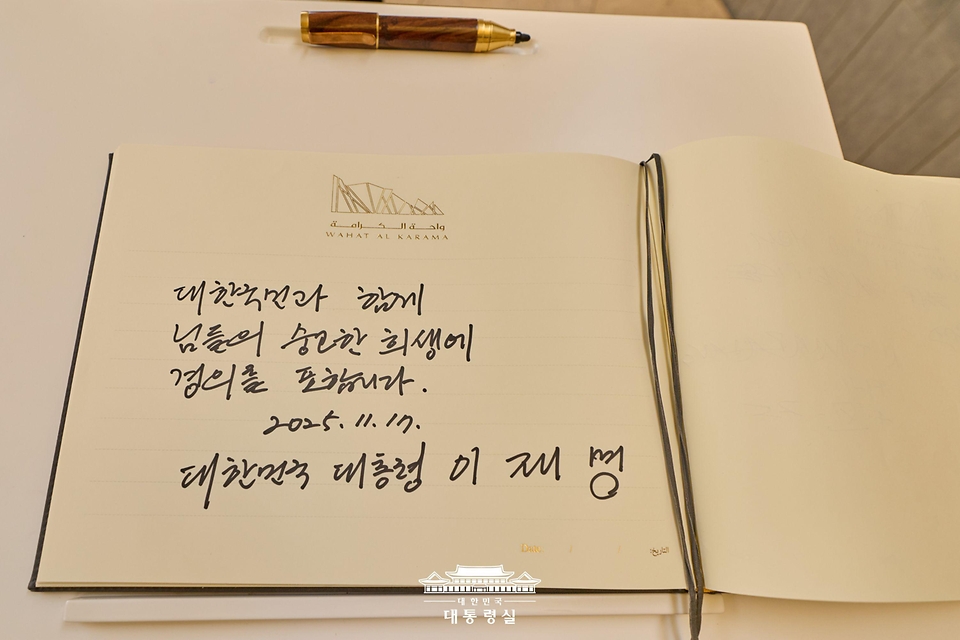 واحة الكرامة
WAHAT AL KARAMA
대한국민과 함께
님들의 숭고한 희생에
경의를 표합니다.
2025.11.17.
대한민국 대통령 이재명
Date / / التاريخ
대한민국
대통령실